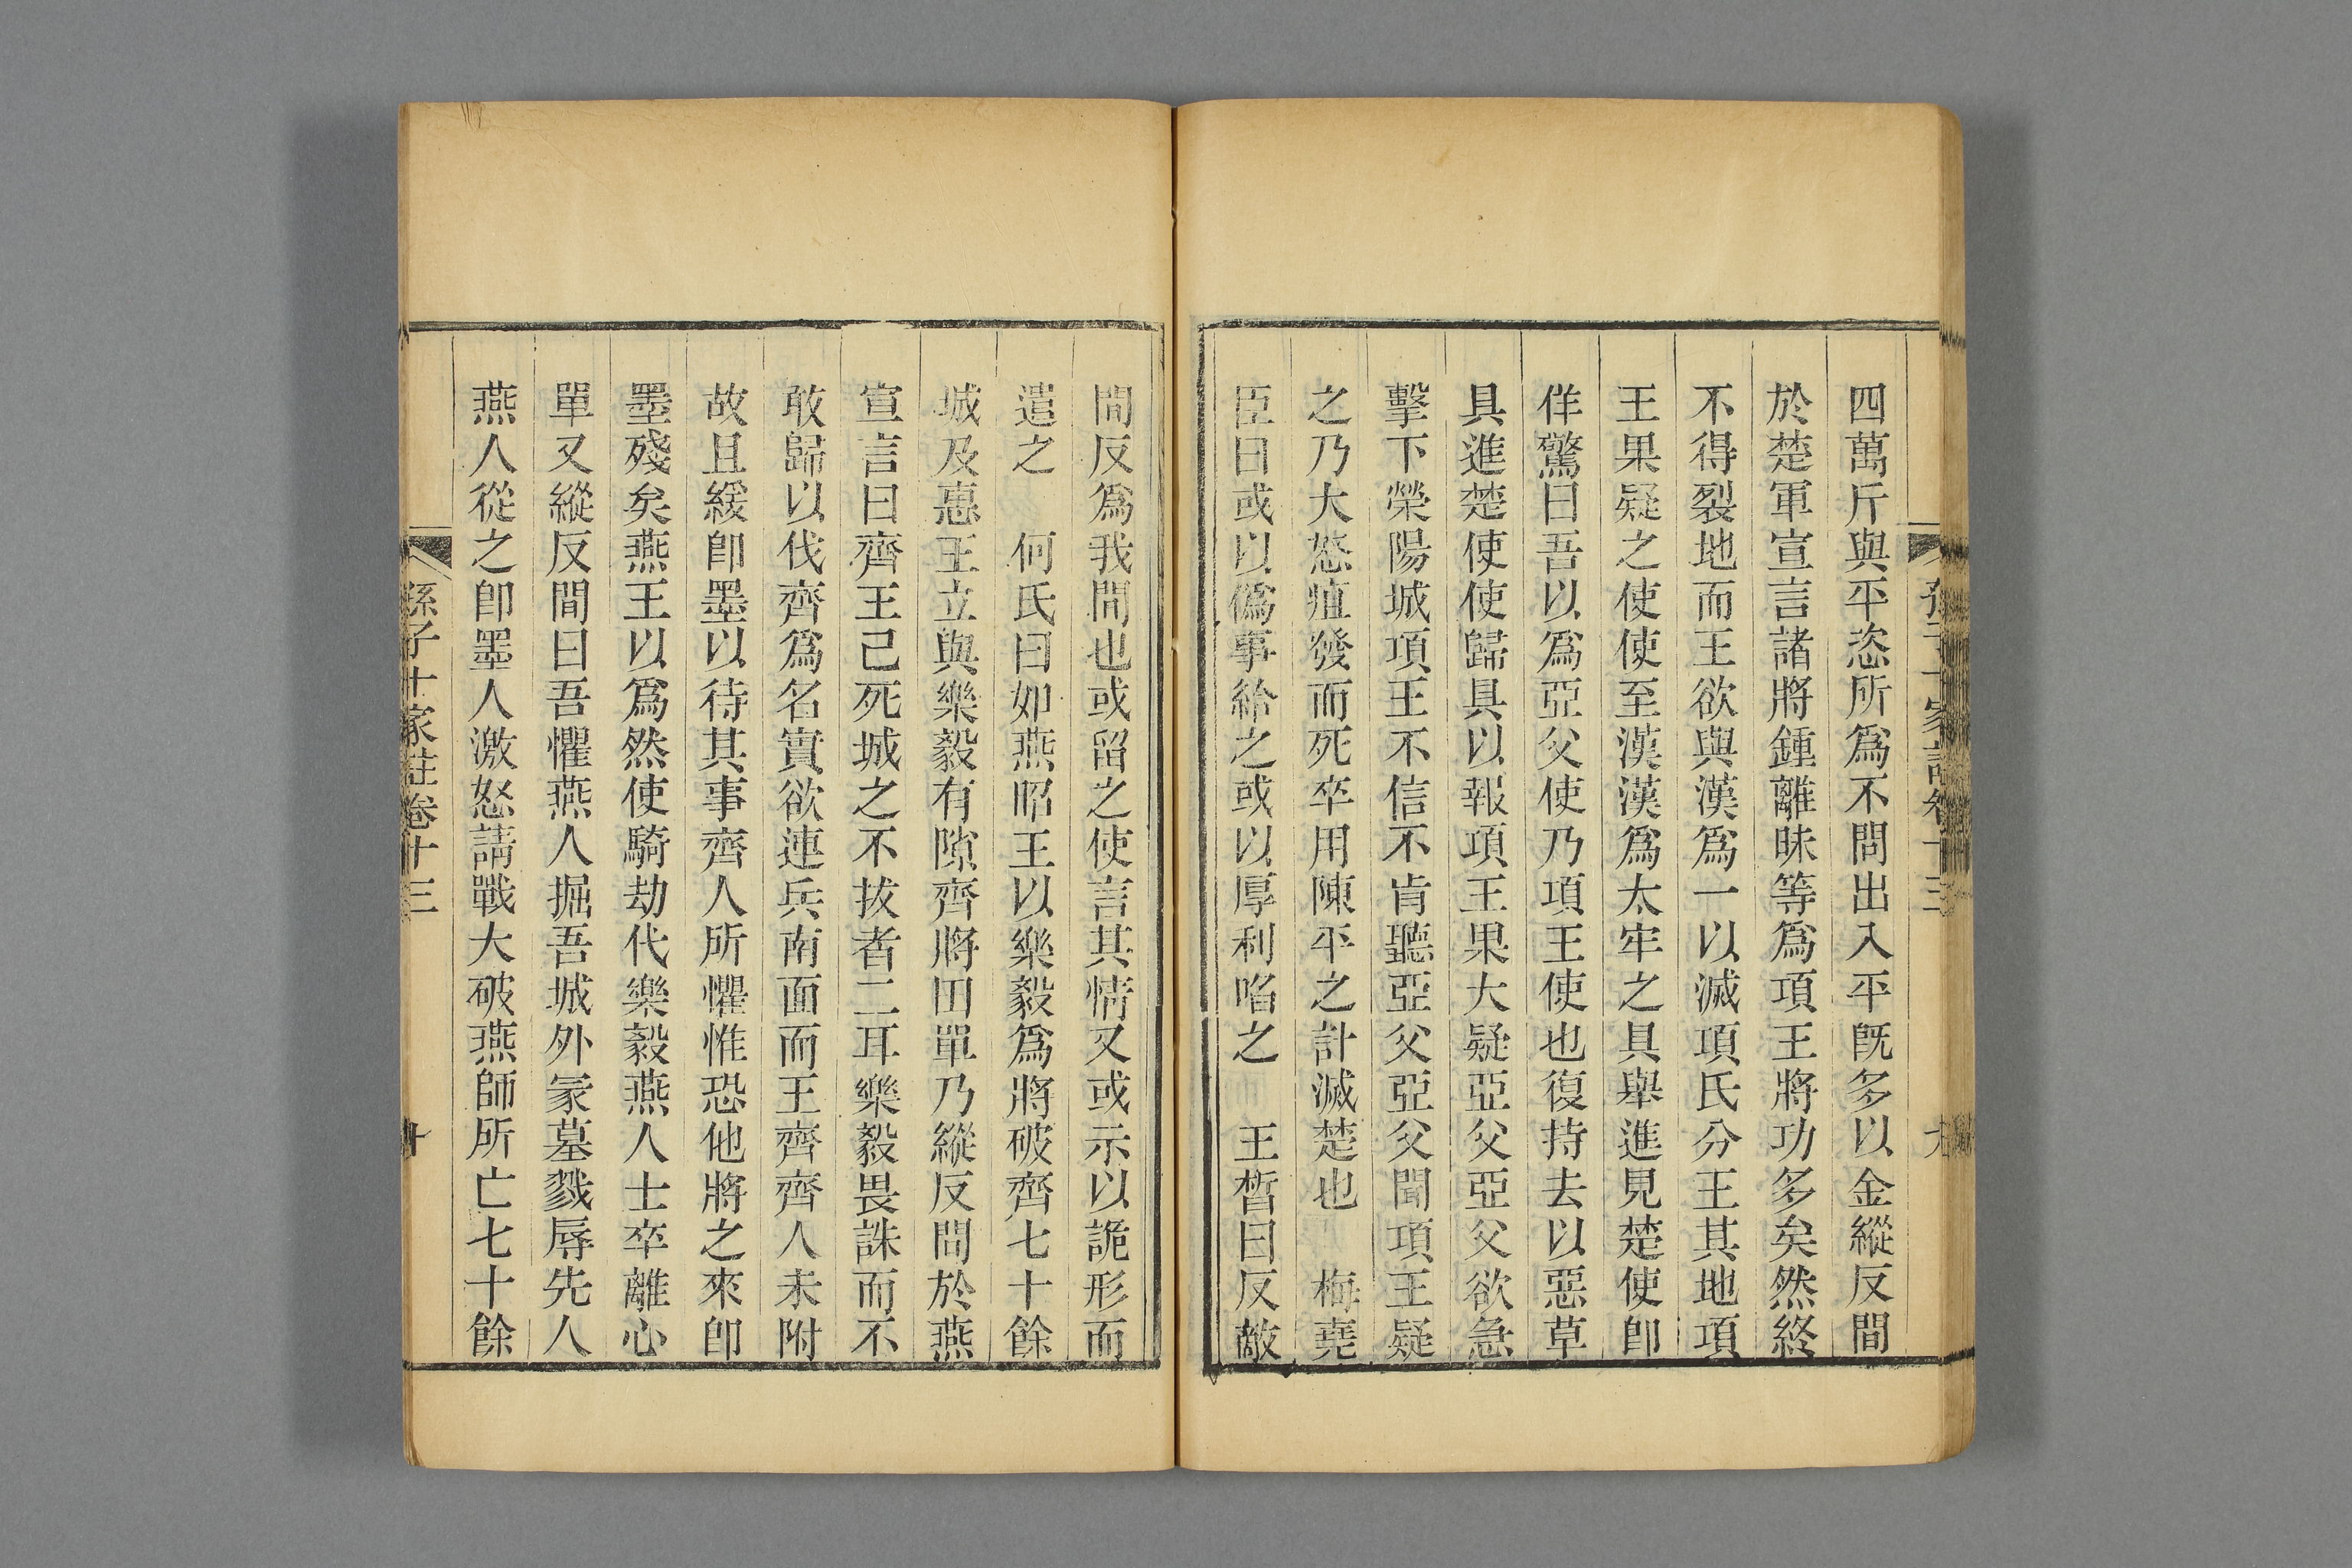 四萬斤與平恣所爲不問出入平旣多以金縱反間
於楚軍宣言諸將鍾離昧等爲項王將功多矣然終
不得裂地而王欲與漢爲一以滅項氏分王其地項
王果疑之使使至漢漢爲太牢之具舉進見楚使卽
佯驚曰吾以爲亞父使乃項王使也復持去以惡草
具進楚使使歸具以報項王果大疑亞父亞父欲急
擊下滎陽城項王不信不肯聽亞父亞父聞項王疑
之乃大怒疽發而死卒用陳平之計滅楚也　梅堯
臣曰或以僞事紿之或以厚利啗之　王晳曰反敵
間反爲我間也或留之使言其情又或示以詭形而
遣之　何氏曰如燕昭王以樂毅爲將破齊七十餘
城及惠王立與樂毅有隙齊將田單乃縱反間於燕
宣言曰齊王已死城之不拔者二耳樂毅畏誅而不
敢歸以伐齊爲名實欲連兵南面而王齊齊人未附
故且緩卽墨以待其事齊人所懼惟恐他將之來卽
墨殘矣燕王以爲然使騎劫代樂毅燕人士卒離心
單又縱反間曰吾懼燕人掘吾城外冢墓戮辱先人
燕人從之卽墨人激怒請戰大破燕師所亡七十餘
孫子十家註卷十三　十